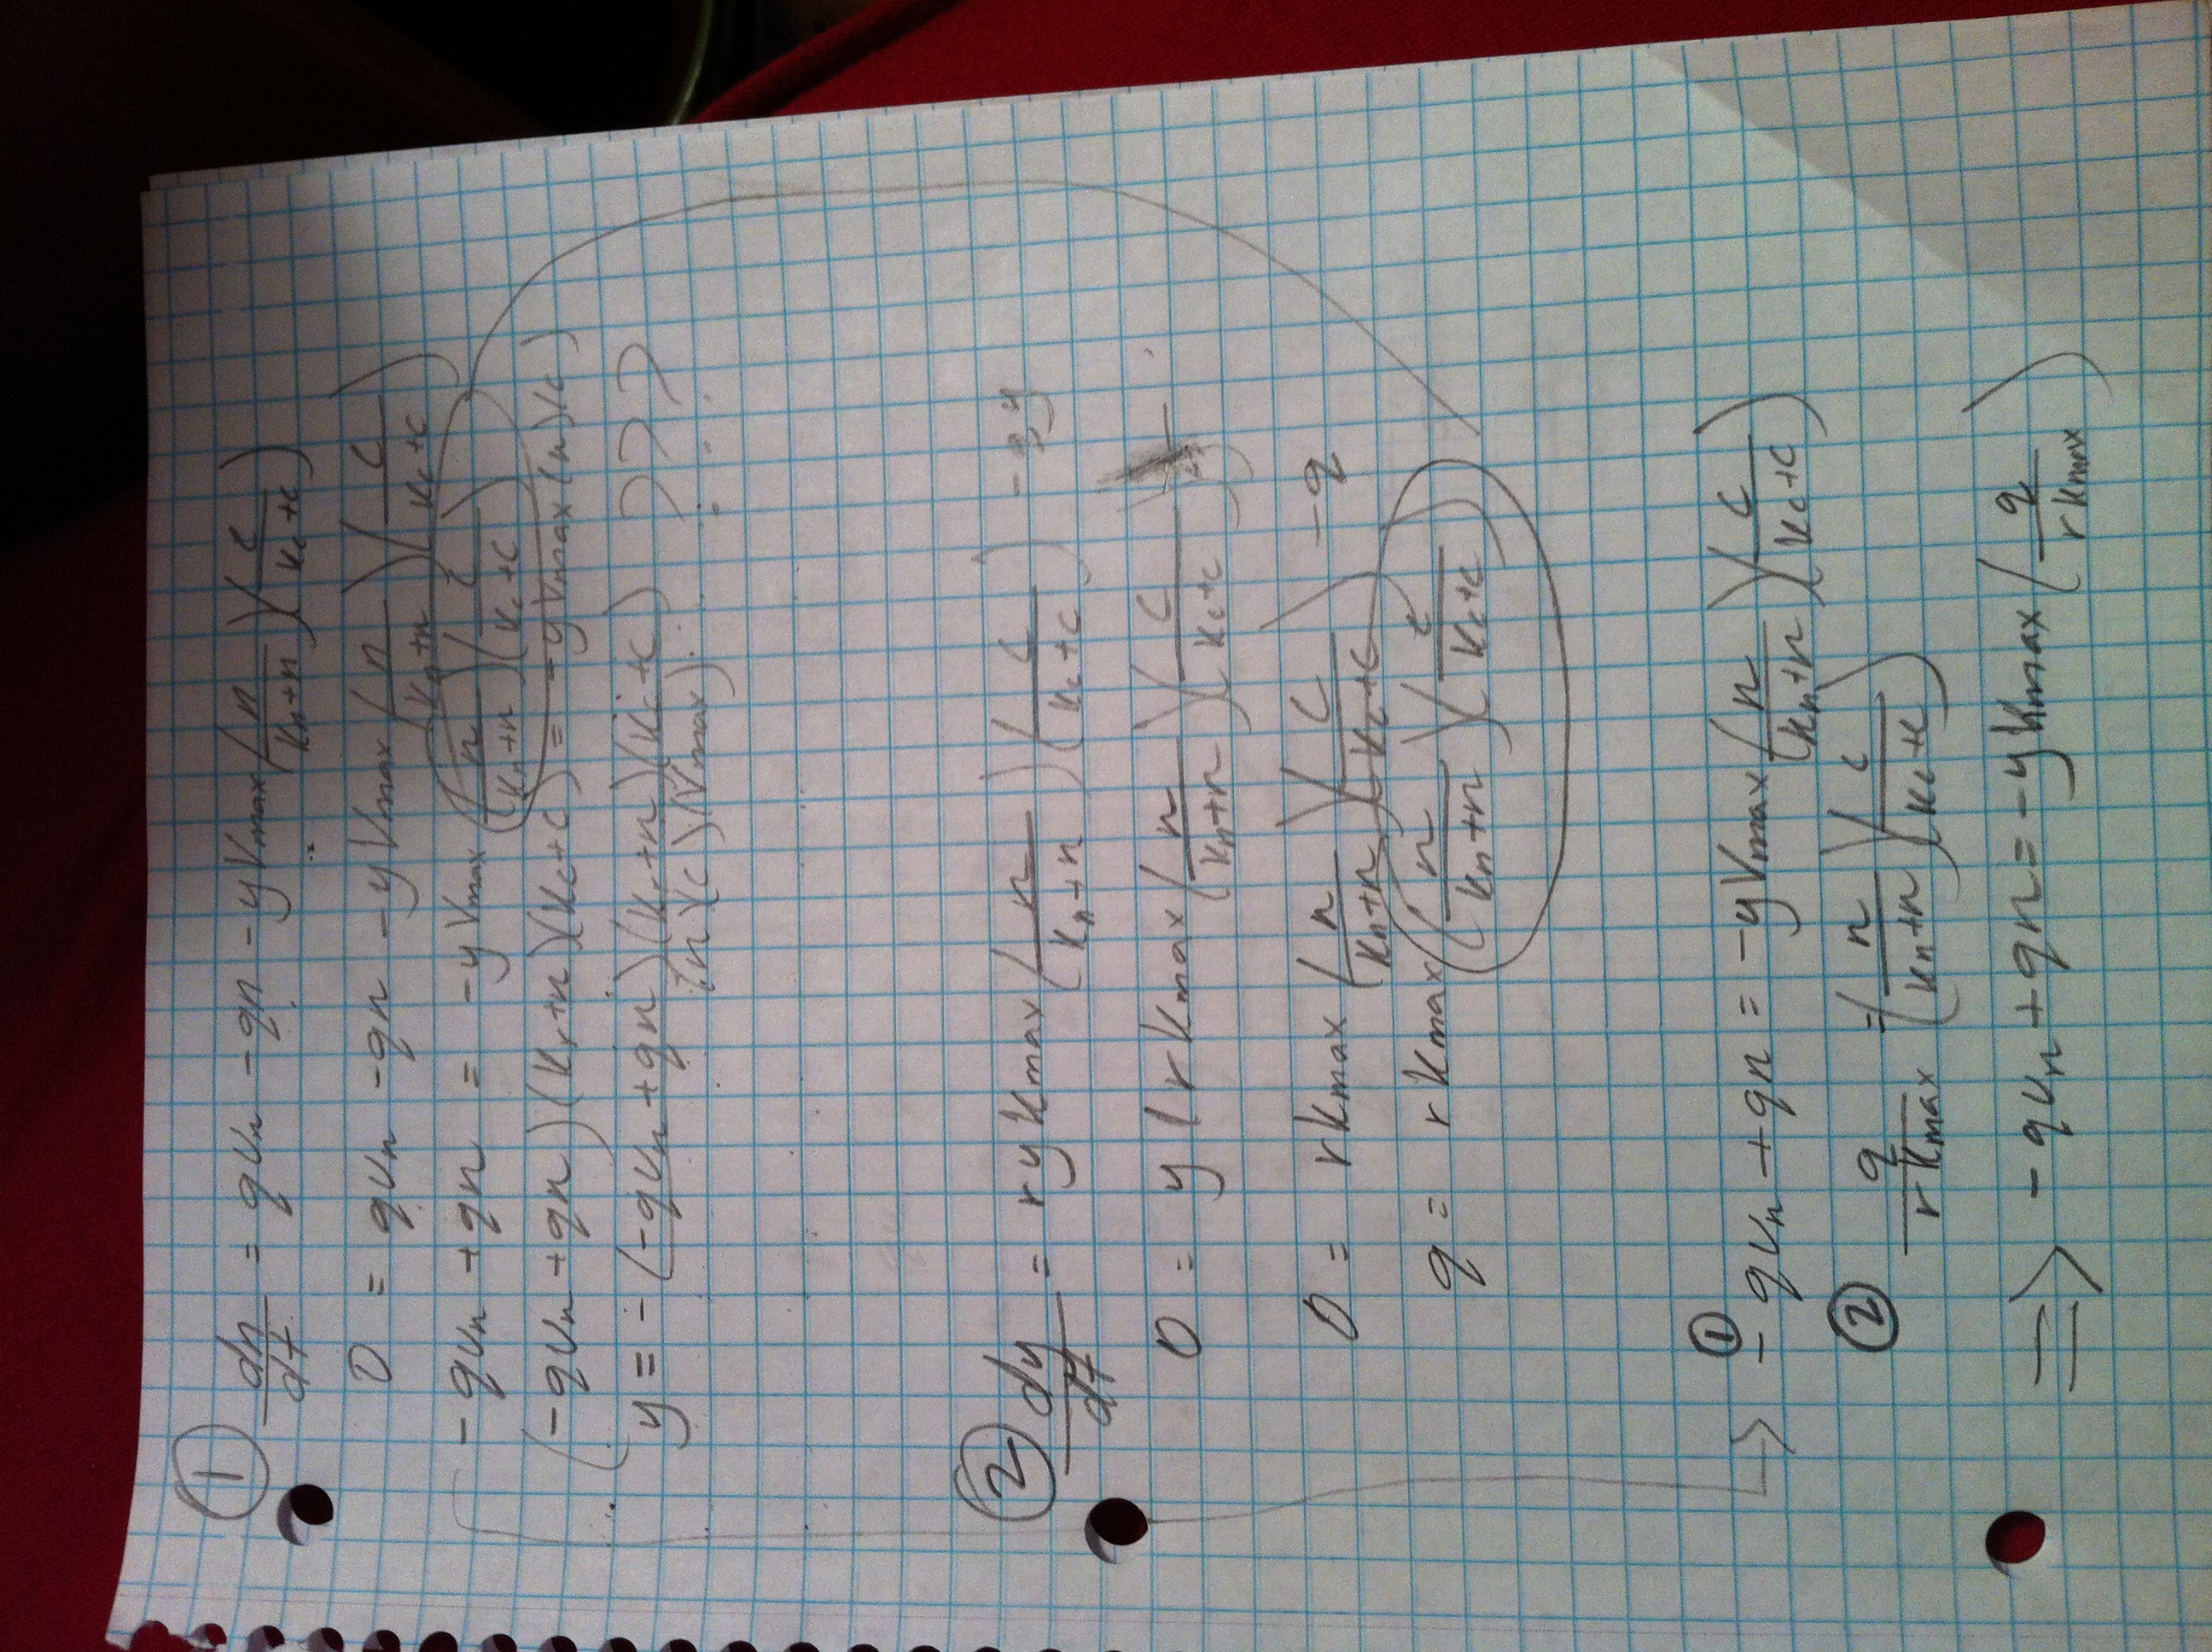 ① dn/dt = qVn - qn - yVmax(n/(kn+n))(c/(kc+c))
0 = qVn - qn - yVmax(n/(kn+n))(c/(kc+c))
-qVn + qn = -yVmax(n/(kn+n))(c/(kc+c))
(-qVn + qn)(kr+n)(kc+c) = -yVmax(n)(c)
y = -(-qVn + qn)(kr+n)(kc+c)/(n)(c)(Vmax) ???
② dy/dt = rykmax(n/(kn+n))(c/(kc+c)) - qy
0 = y(rkmax(n/(kn+n))(c/(kc+c))
0 = rkmax(n/(kn+n))(c/(kc+c)) - q
q = rkmax(n/(kn+n))(c/(kc+c))
① → -qVn + qn = -yVmax(n/(kn+n))(c/(kc+c))
② q/rkmax = (n/(kn+n))(c/(kc+c))
⇒ -qVn + qn = -ykmax(q/rkmax)